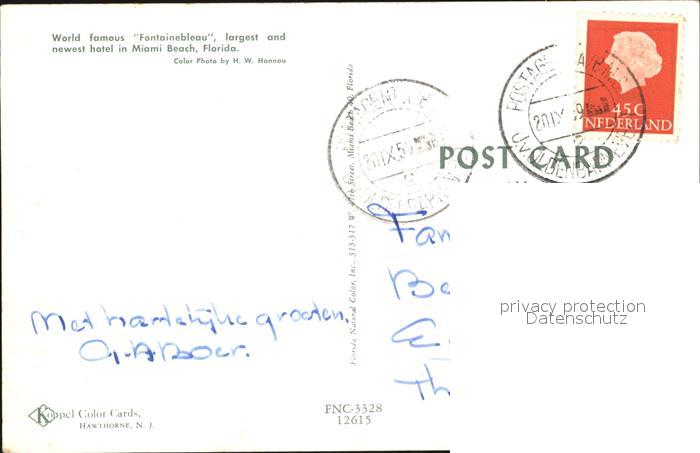 World famous "Fontainebleau", largest and
newest hotel in Miami Beach, Florida.
Color Photo by H. W. Hannau
45C
NEDERLAND
POSTAG
20 IX 59
2
20 IX 5
2
POST CARD
Florida Natural Color, Inc., 315-317 W. Street, Miami Beach 40, Florida
Fam
Be
Th
privacy protection
Datenschutz
Met hartelijke groeten.
Boer.
Koppel Color Cards,
HAWTHORNE, N. J.
FNC-3328
12615